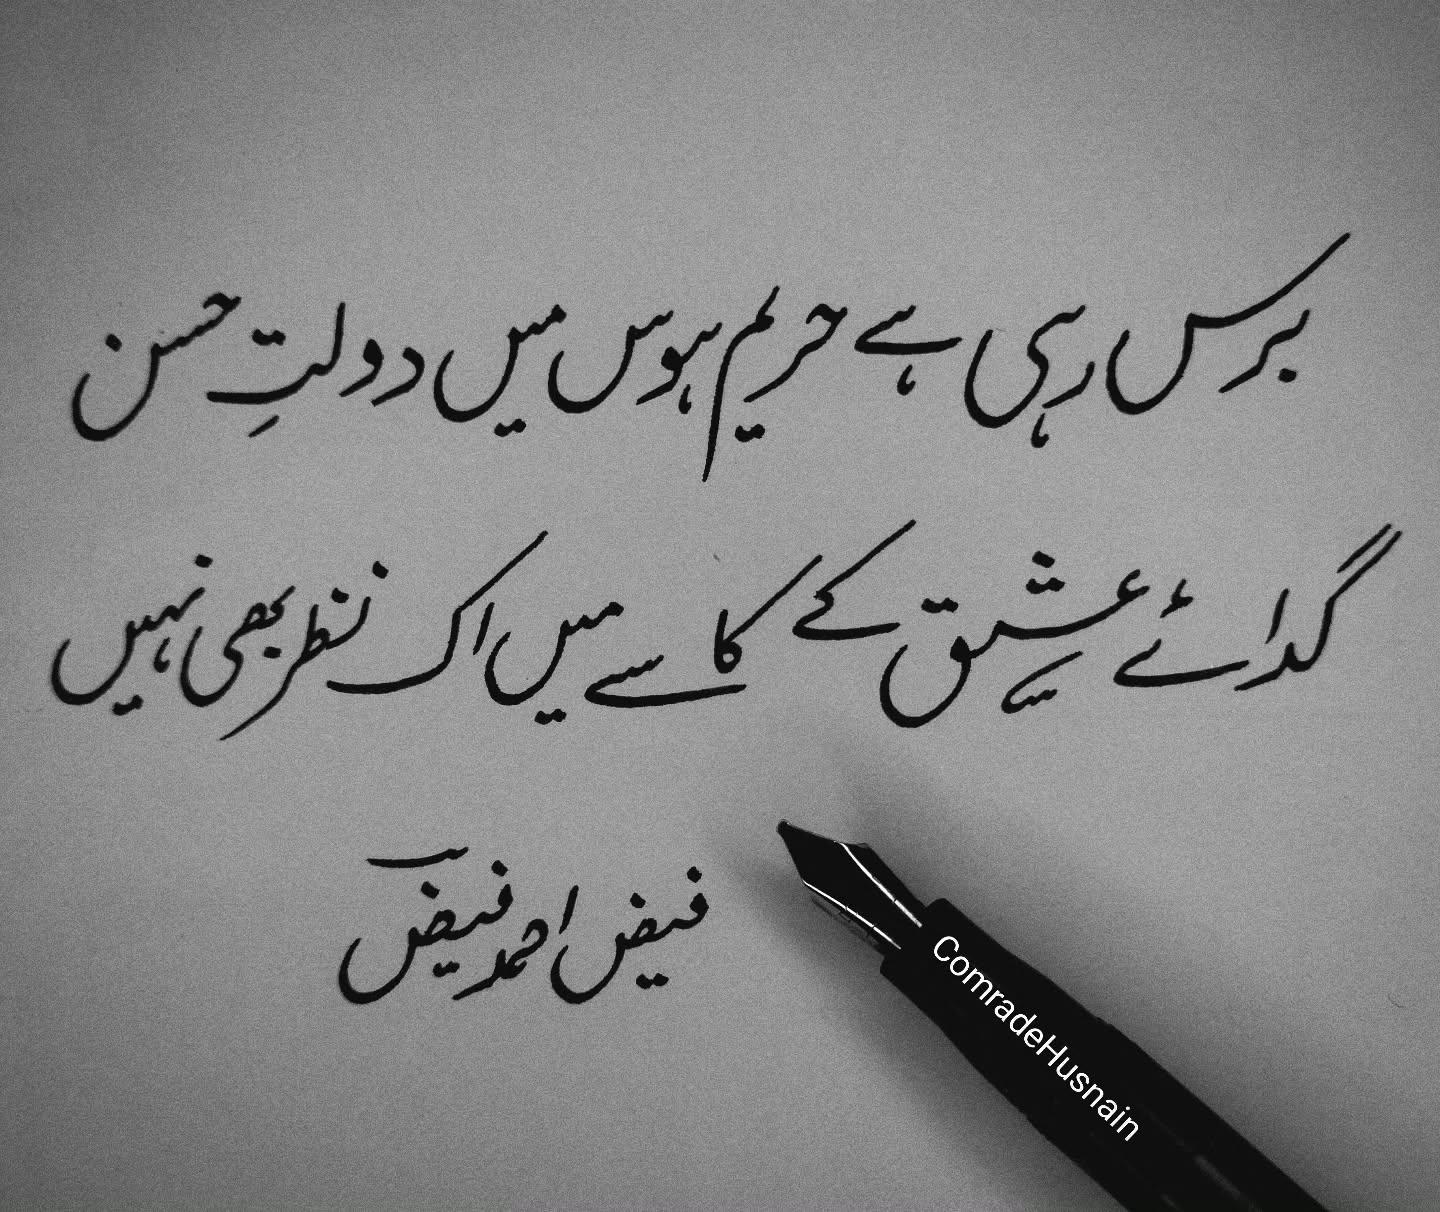 برس رہی ہے حریم ہوس میں دولتِ حسن
گدائے عشق کے کاسے میں اک نظر بھی نہیں
فیض احمد فیضؔ
ComradeHusnain